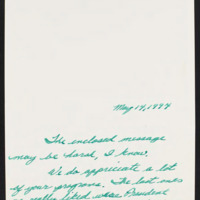 May 19, 1994
The enclosed message
may be harsh, I know.
We do appreciate a lot
of your programs. The last ones
we really liked were President